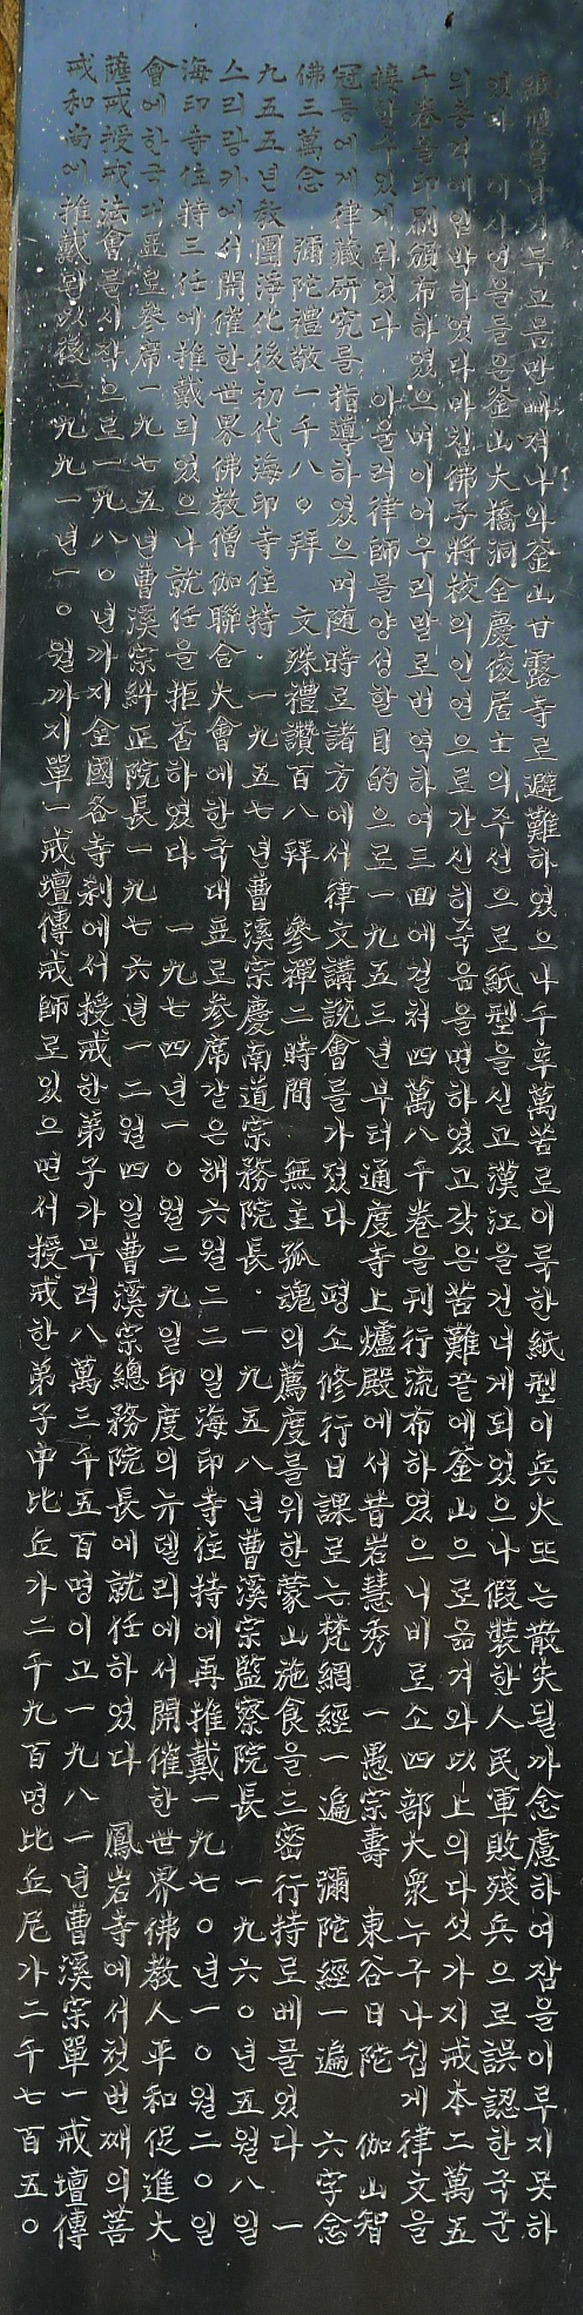 紙型을남겨두고몸만빠져나와釜山甘露寺로避難하였으나千辛萬苦로이룩한紙型이兵火또는散失될까念慮하여잠을이루지못하
였다 이사연을들은釜山大橋洞全慶俊居士의주선으로紙型을싣고漢江을건너게되었으나假裝한人民軍敗殘兵으로誤認한국군
의총격에임박하였다마침佛子將校의인연으로간신히죽음을면하였고갖은苦難끝에釜山으로옮겨와以上의다섯가지戒本二萬五
千卷을印刷頒布하였으며이어우리말로번역하여三回에걸쳐四萬八千卷을刊行流布하였으니비로소四部大衆누구나쉽게律文을
接할수있게되었다 아울러律師를양성할目的으로一九五三년부터通度寺上爐殿에서昔岩慧秀 一愚宗壽 東谷日陀 伽山智
冠등에게律藏研究를指導하였으며随時로諸方에서律文講說會를가졌다 평소修行日課로는梵網經一遍 彌陀經一遍 六字念
佛三萬念 彌陀禮敬一千八○拜 文殊禮讚百八拜 參禪二時間 無主孤魂의薦度를위한蒙山施食을三密行持로베풀었다 一
九五五년敎團淨化後初代海印寺住持·一九五七년曹溪宗慶南道宗務院長·一九五八년曹溪宗監察院長 一九六○년五월八일
스리랑카에서開催한世界佛敎僧伽聯合大會에한국대표로参席같은해六월二二일海印寺住持에再推戴一九七○년一○월二○일
海印寺住持三任에推戴되었으나就任을拒否하였다 一九七四년一○월二九일印度의뉴델리에서開催한世界佛教人平和促進大
會에한국대표로參席一九七五년曹溪宗糾正院長一九七六년一二월四일曹溪宗總務院長에就任하였다 鳳岩寺에서첫번째의菩
薩戒授戒法會를시작으로一九八○년까지全國各寺刹에서授戒한弟子가무려八萬三千五百명이고一九八一년曹溪宗單一戒壇傳
戒和尚에推戴된以後一九九一년一○월까지單一戒壇傳戒師로있으면서授戒한弟子中比丘가二千九百명比丘尼가二千七百五○